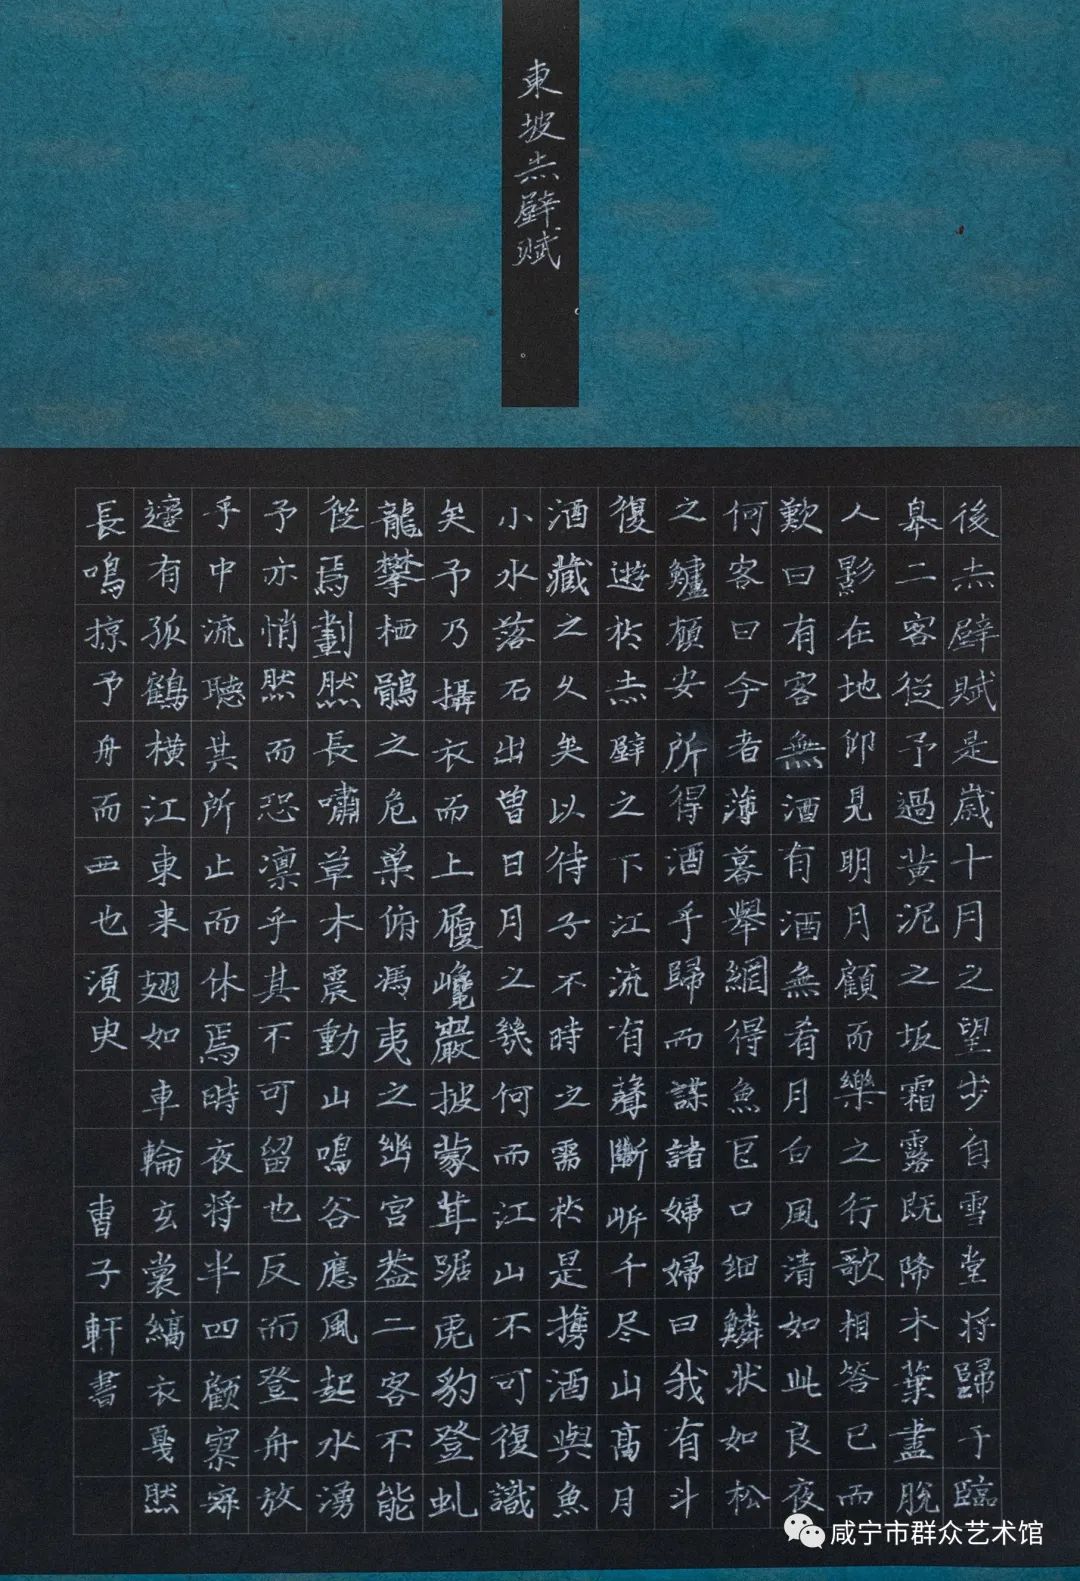 東坡赤壁賦
後赤壁賦是歲十月之望步自雪堂将歸于臨
皋二客從予過黃泥之坂霜露既降木葉盡脫
人影在地仰見明月顧而樂之行歌相答已而
歎曰有客無酒有酒無肴月白風清如此良夜
何客曰今者薄暮舉網得魚巨口細鱗狀如松
之鱸顧安所得酒乎歸而謀諸婦婦曰我有斗
復遊於赤壁之下江流有聲斷岸千尺山高月
酒藏之久矣以待子不時之需於是攜酒與魚
小水落石出曾日月之幾何而江山不可復識
矣予乃攝衣而上履巉巖披蒙茸踞虎豹登虬
龍攀栖鶻之危巢俯馮夷之幽宮蓋二客不能
從焉劃然長嘯草木震動山鳴谷應風起水湧
予亦悄然而恐凛乎其不可留也反而登舟放
乎中流聽其所止而休焉時夜将半四顧
適有孤鶴橫江東来翅如車輪玄裳縞衣戛然
長鳴掠予舟而西也須臾
曹子軒書
咸宁市群众艺术馆